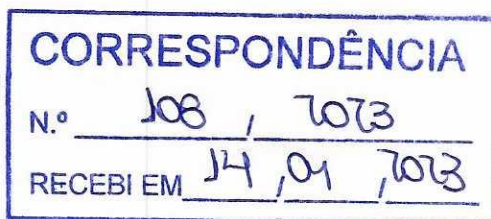 CORRESPONDÊNCIA
N.º 108 / 2023
RECEBI EM 14 / 04 / 2023